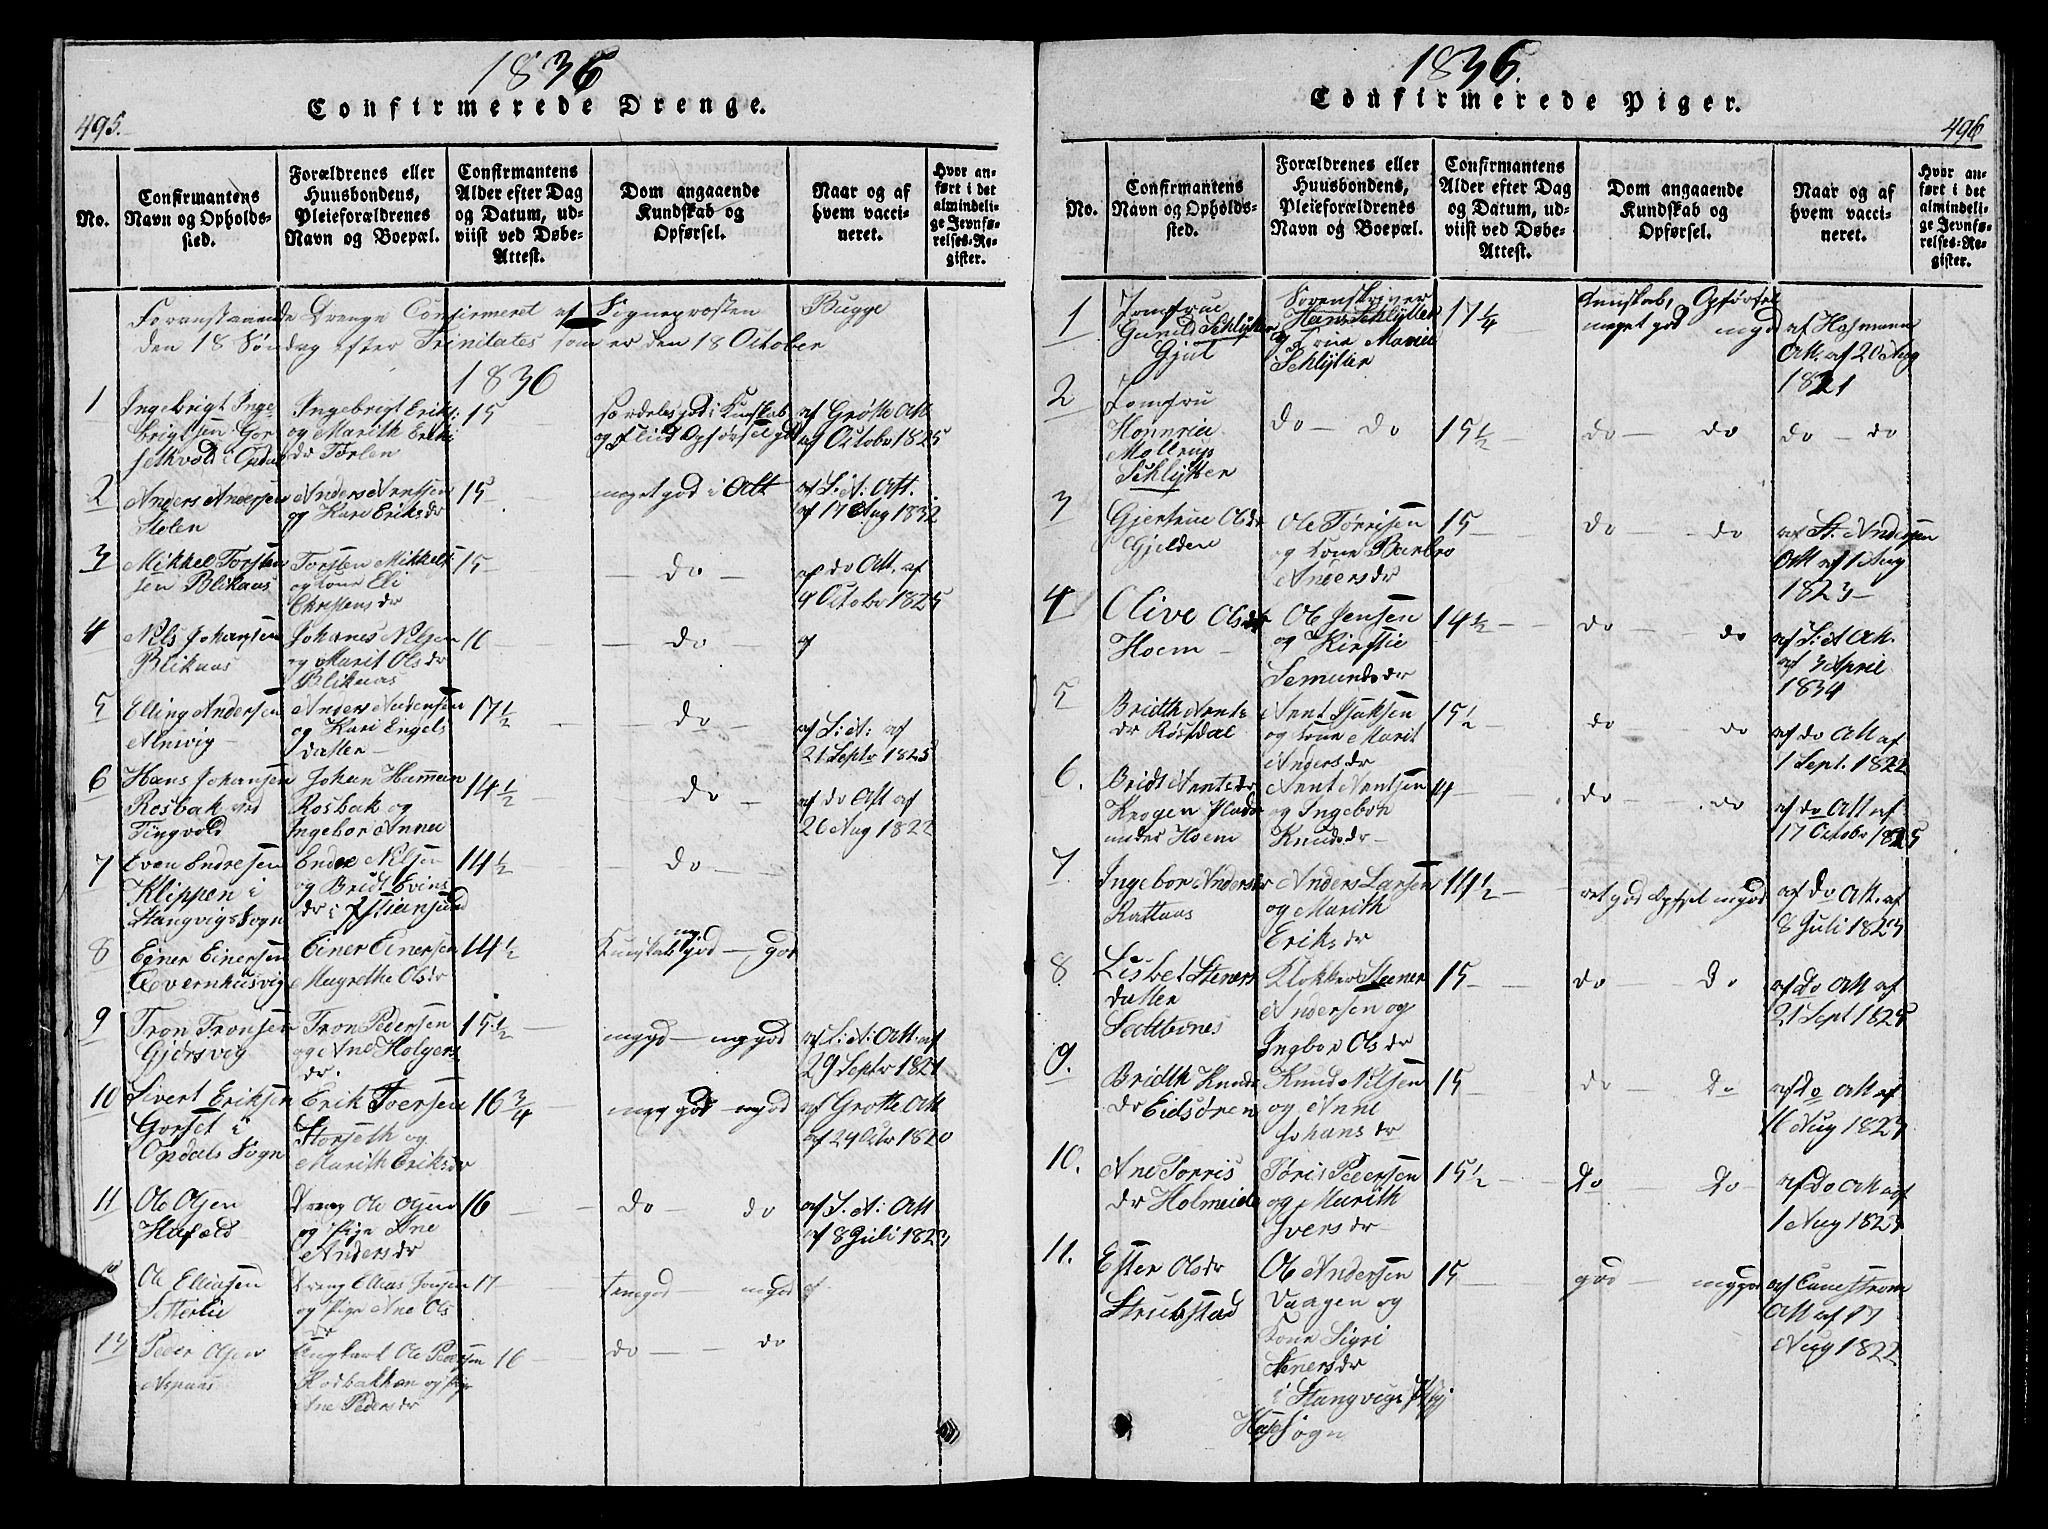 1836
Confirmerede Drenge.
495.
No.
Confirmantens
Navn og Opholds-
sted.
Forældrenes eller
Huusbondens,
Pleieforældrenes
Navn og Boepæl.
Confirmantens
Alder efter Dag
og Datum, ud-
viist ved Døbe-
Attest.
Dom angaaende
Kundskab og
Opførsel.
Naar og af
hvem vacci-
neret.
Hvor an-
ført i det
almindeli-
ge Jevnfø-
relses-Re-
gister.
Foranstaaende Drenge Confirmeret af Sogneprosten Bugge
den 18 Søndag efter Trinitates som er den 18 October
1836
1
Ingebrigt Inge-
brigtsen Gor-
sethvold i Opdal
Ingebrigt Eriks:
og Marith Eriks
dr
15
særdeles god i Kunskab
og Fliid Opførsel god
af Grøtte Att
af Octobr 1825
2
Anders Andersen
Stolen
Anders Arntsen
og Kari Eriksdr
15
meget god i Alt
af S: A: Att.
af 17 Aug 1832
3
Mikkel Torsten
sen Blikaas
Torsten Mikkels
og Kone Eli
Christensdr
15
— do —
af do Att. af
9 Octobr 1825
4
Nels Johansen
Blikaas
Johanes Nelsen
og Marit Olsdr
Blikaas
16
— do —
af
5
Elling Andersen
Alnvig
Anders Andersen
og Kari Engels
datter —
17 1/2
— do —
af S: A: af
21 Septr 1825
6
Hans Johansen
Rosbak ved
Tingvold
Johan Hamman
Rosbak og
Ingebor Anne
14 1/2
do —
af do Att af
26 Aug 1822
7
Even Endresen
Klippen i
Stangvigs Sogn
Endre Nelsen
og Bridt Evins
dr i Xstiansund
14 1/2
— do —
8
Einer Einersen
Qvernhusvig
Einer Einersen
Magrethe Olsdr
14 1/2
Kunskab mgod — god
9
Tron Tronsen
Gjørsvig
Tron Pedersen
og Ane Holgers
dr.
15 1/2
mggd — mg god
af S: A: Att. af
29 Septr 1821
10
Sivert Eriksen
Gorset i
Opdals Sogn
Erik Toersen
Storseth og
Marith Eriksdr
16 3/4
meg god — mgod
af Grøtte Att
af 29 Octr 1820
11
Ole Olsen
Hafæld
Dreng Ole Olsen
og Pige Ane
Andersdr
16
do — do
af S. A: Att
af 8 Juli 1823
Ole Elliasen
Setterlie
Dreng Ellias Jonsen
og Pige Ane Ols
dr
17
temgod — mgod
af
13
Peder Olsen
Aspaas
Ungkarl Ole Pedersen
Rodbakken og Pige
Ane Pedersdr
16
do — do
1836.
Confirmerede Piger.
496
No.
Confirmantens
Navn og Opholds-
sted.
Forældrenes eller
Huusbondens,
Pleieforældrenes
Navn og Boepæl.
Confirmantens
Alder efter Dag
og Datum, ud-
viist ved Døbe-
Attest.
Dom angaaende
Kundskab og
Opførsel.
Naar og af
hvem vacci-
neret.
Hvor an-
ført i det
almindeli-
ge Jevnfø-
relses-Re-
gister.
1
Jomfrue
Gunild Schlytter
Gjul
Sorenskriver
Hans Schlytter
og Trine Marie
Schlytter
17 1/4
Kunskab, Opførsel
meget god mgod
af Hofmann
Att. af 20 Aug
1821
2
Jomfru
Honnrie
Mollrup
Schlytter
do — do
15 1/2
do — do
do — do
3
Gjertrue Olsdr
Gjelden
Ole Torrisen
og Kone Barbro
Andersdr
15
do — do
af St. Andersen
Att af 1 Aug
1823 —
4
Olive Olsdr
Hoem —
Ole Jensen
og Kirstie
Semundsdr
14 1/2
do — do
af S: A Att.
af 3 April
1834
5
Bridth Arnts
dr Røstdal
Arnt Isaksen
og Kone Marit
Andersdr
15 1/2
do — do
af do Att af
1 Sept. 1822
6.
Bridt Arntsdr
Krogen Plads
under Hoem
Arnt Arntsen
og Ingebor
Knudsdr —
14
do — do
af do Att af
17 Octobr 1825
7.
Ingebor Andersdr
Rottaas
Anders Larsen
og Marith
Eriksdr
14 1/2
ret god Opfsel mgod
af do Att. af
8 Juli 1823
8
Lisbet Steners
datter
Settemnes
Klokker Steener
Andersen og
Ingbor Olsdr
15
do — do
af do Att af
21 Sept 1825
9.
Bridth Knuds
dr Eidsøren
Knud Nilsen
og Anne
Johansdr
15
do — do
af do Att af
16 Aug 1823
10.
Ane Torris
dr Holmeide
Toris Pedersen
og Marith
Iversdr —
15 1/2
do do
af do Att af
1 Aug 1823
11.
Ester Olsdr
Strubstad
Ole Andersen
Vaagen og
Kone Sigri
Stenersdr
i Stangvigs Pstgj
Hals Sogn
15
god — mggod
af Cunestrom
Att af 17
Aug 1822